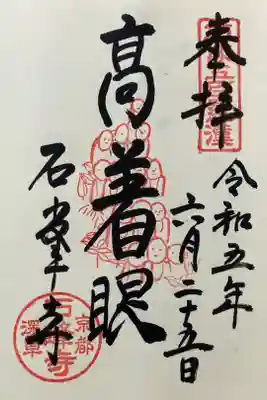 奉拝
令和五年
六月二十五日
高着眼
石峯寺
京都
石峰寺
深草